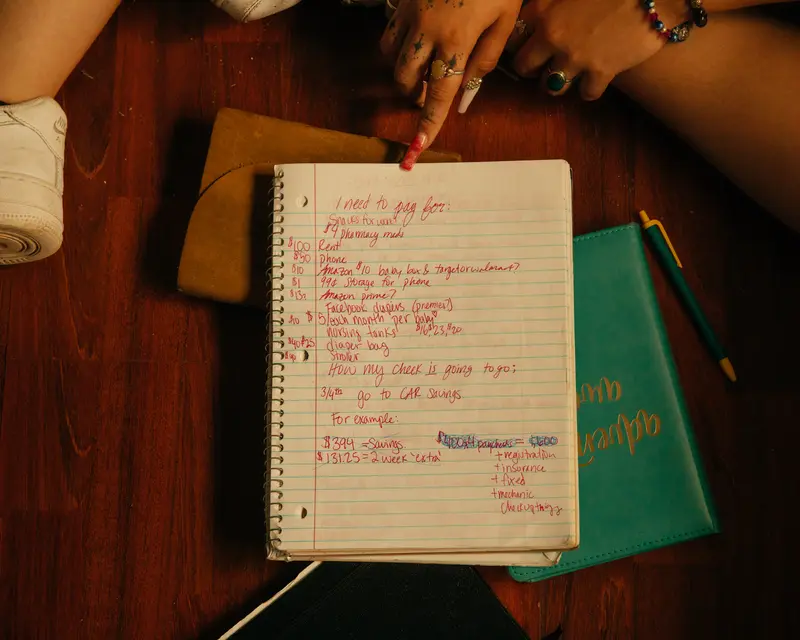 I need to pay for:
Snacks for work
$9 pharmacy meds
$100 Rent
$50 phone
$10 Amazon $10 baby box & target or walmart?
$1 99¢ storage for phone
$13 Amazon prime?
Facebook diapers (premier)
$10 $5/each month per baby
nursing tanks $16, 23, $20
$40 $25 diaper bag
$40 stroller
How my check is going to go:
3/4ths go to CAR savings
For example:
$394 = savings $400 x 4 paychecks = 1,600
$131.25 = 2 week "extra" + registration
+ insurance
+ fixed
+ mechanic
checkup thingy
adven